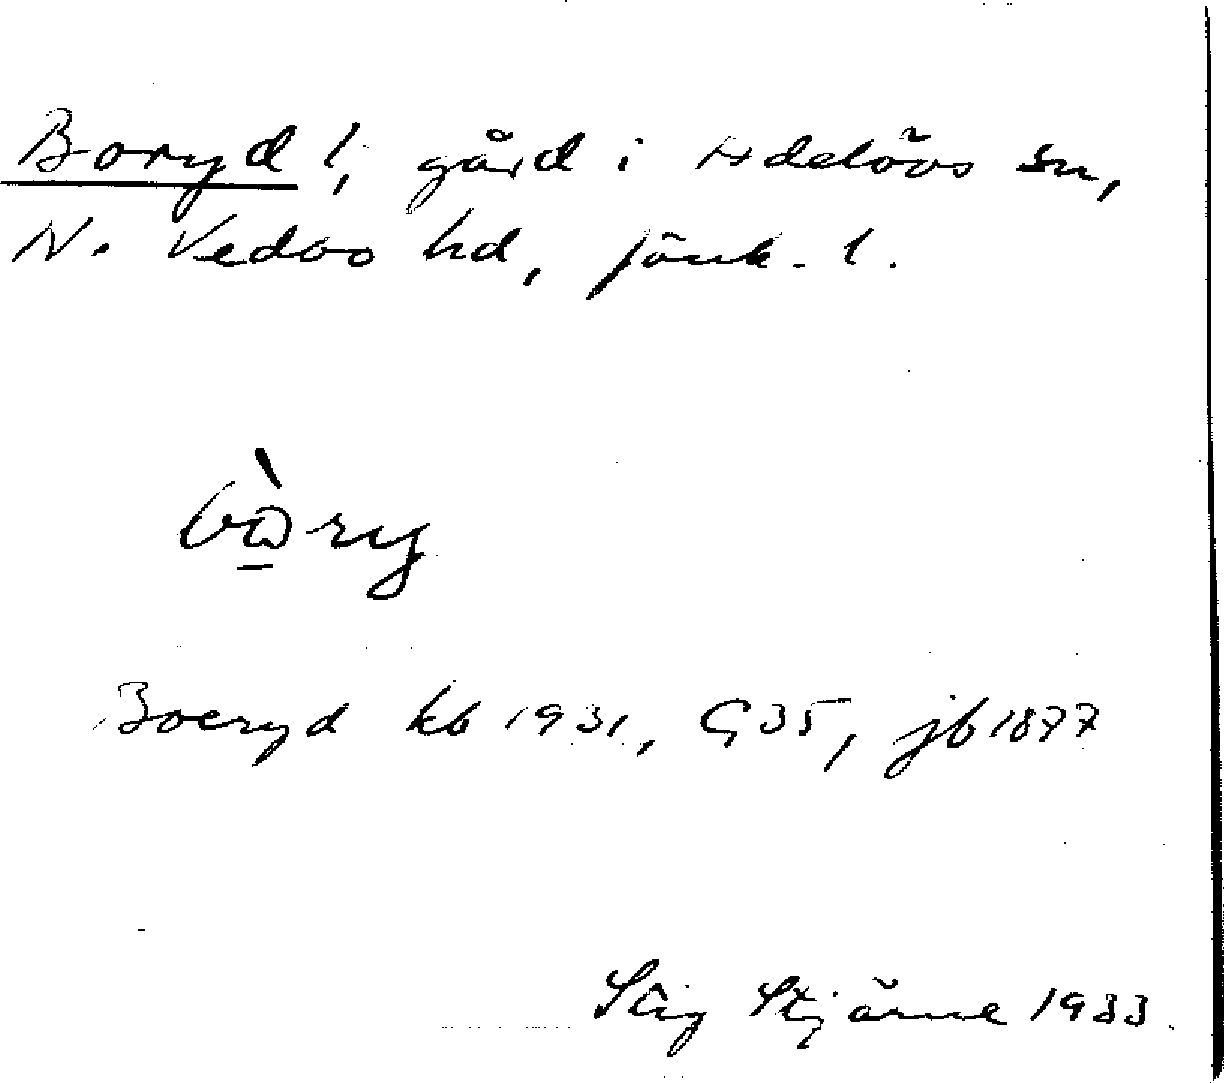 Boryd !, gård i Adelövs sn,
N. Vedbo hd, Jönk. l.
bò̱ry
Boeryd kb 1931, G35, jb 1877
Stig Stjärne 1933.